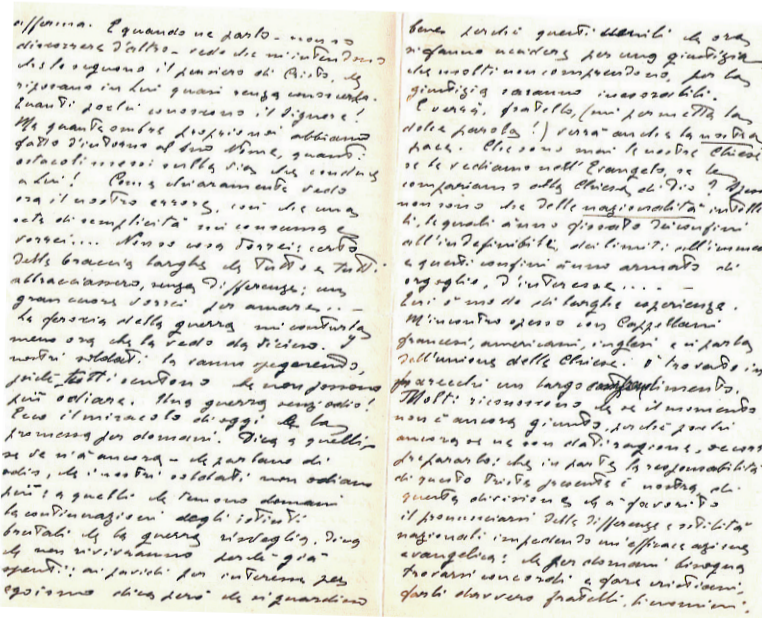 afferma. E quando ne parlo – non so
discorrere d'altro – vedo che m'intendono
che lo seguono il pensiero di Cristo, che
riposano in Lui quasi senza conoscerlo.
Quanti pochi conoscono il Signore!
Ma quante ombre proprio noi abbiamo
fatto d'intorno al Suo Nome, quanti
ostacoli messi sulla via che conduce
a Lui! Come chiaramente vedo
ora il nostro errore, così che una
sete di semplicità mi consuma e
vorrei.... Non so cosa vorrei; certo
delle braccia larghe che tutto e tutti
abbracciassero, senza differenze; un
gran cuore vorrei per amare... –
La ferocia della guerra mi conturba
meno ora che la vedo da vicino. I
nostri soldati la vanno spegnendo,
poiché tutti sentono che non possono
più odiare. Una guerra senz'odio!
Ecco il miracolo di oggi e la
promessa per domani. Dica a quelli –
se ve n'è ancora – che parlano di
odio, che i nostri soldati non odiano
più; a quelli che temono domani
la continuazione degli istinti
brutali che la guerra risveglia, dica
che non rivivranno perché già
spenti; ai pavidi per interesse per
egoismo dica però che si guardino
bene perché questi umili che ora
si fanno uccidere per una giustizia
che molti non comprendono, per la
giustizia saranno inesorabili.
E verrà, fratello, (mi permetta la
dolce parola!) verrà anche la nostra
pace. Che sono mai le nostre Chiese
se le vediamo nell'Evangelo, se le
compariamo alla Chiesa di Dio?
non sono che delle nazionalità
li, le quali ànno fissato dei confini
all'indefinibile, dei limiti all'immenso
e questi confini ànno armato di
orgoglio, d'interesse.... –
Qui è modo di larghe esperienze.
M'incontro spesso con Cappellani
francesi, americani, inglesi e si parla
dell'unione delle Chiese: ò trovato in
parecchi un largo
Molti riconoscono che se il momento
non è ancora giunto, perché pochi
ancora se ne son dati ragione, occorre
prepararlo: che in parte la responsabilità
di questo triste presente è nostra, di
questa divisione che à favorito
il pronunciarsi delle differenze e ostilità
nazionali impedendo un'efficace azione
evangelica: che per domani bisogna
trovarsi concordi e fare cristiani,
farli davvero fratelli, li uomini.